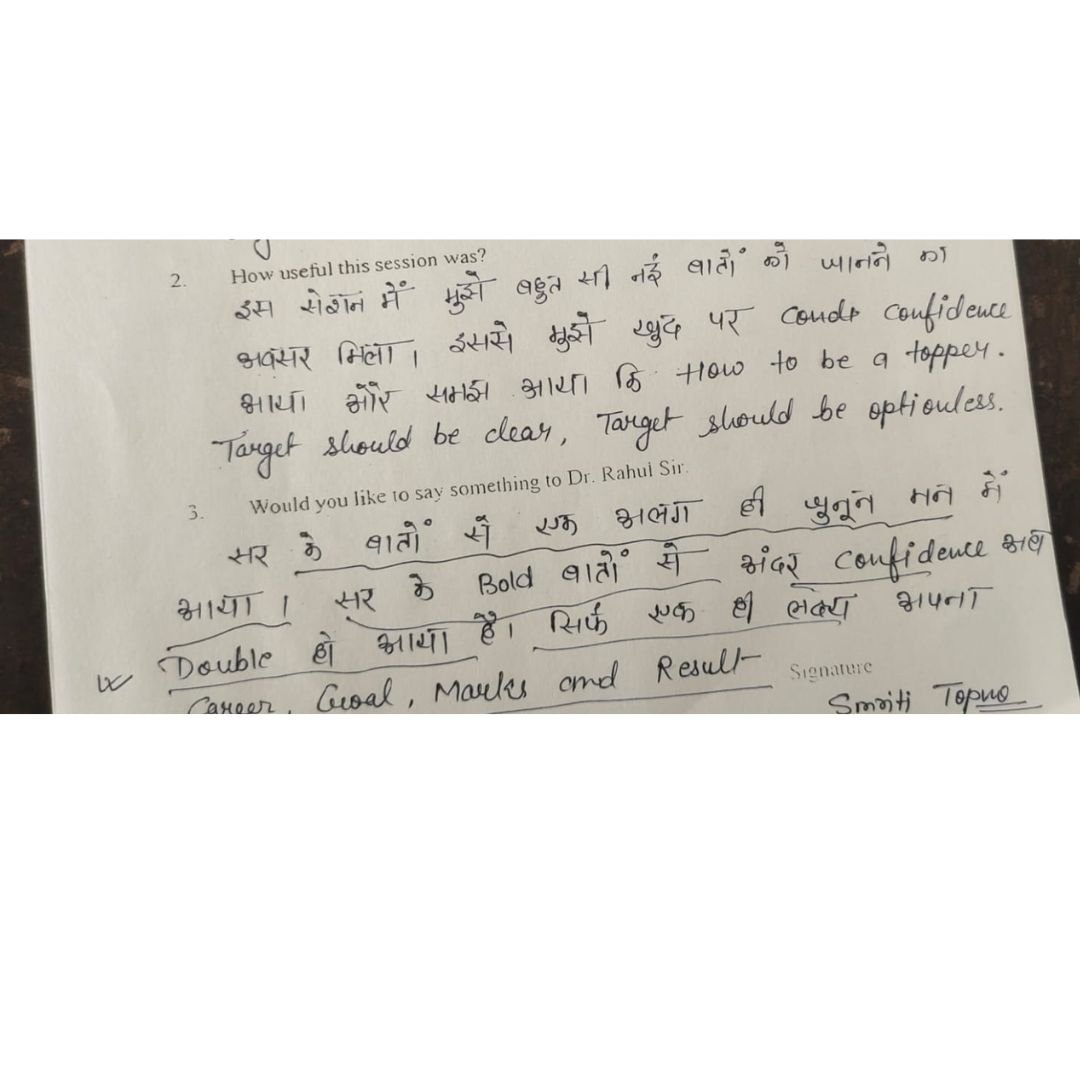 2. How useful this session was?
इस सेशन में मुझे बहुत सी नई बातों को जानने का
अवसर मिला। इससे मुझे खुद पर confidence
आया और समझ आया कि How to be a topper.
Target should be clear, Target should be optionless.
3. Would you like to say something to Dr. Rahul Sir.
सर के बातों से एक अलग ही जुनून मन में
आया। सर के Bold बातों से अंदर confidence अब
Double हो आया है। सिर्फ एक ही लक्ष्य अपना
Career, Goal, Marks and Result
Signature
Smriti Topno